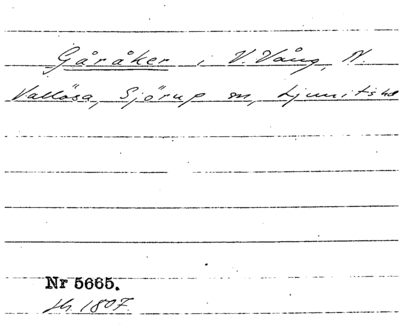 Gåråker i V. Vång, N.
Vallösa, Sjörup sn, Ljunits hd
Nr 5665.
1807.